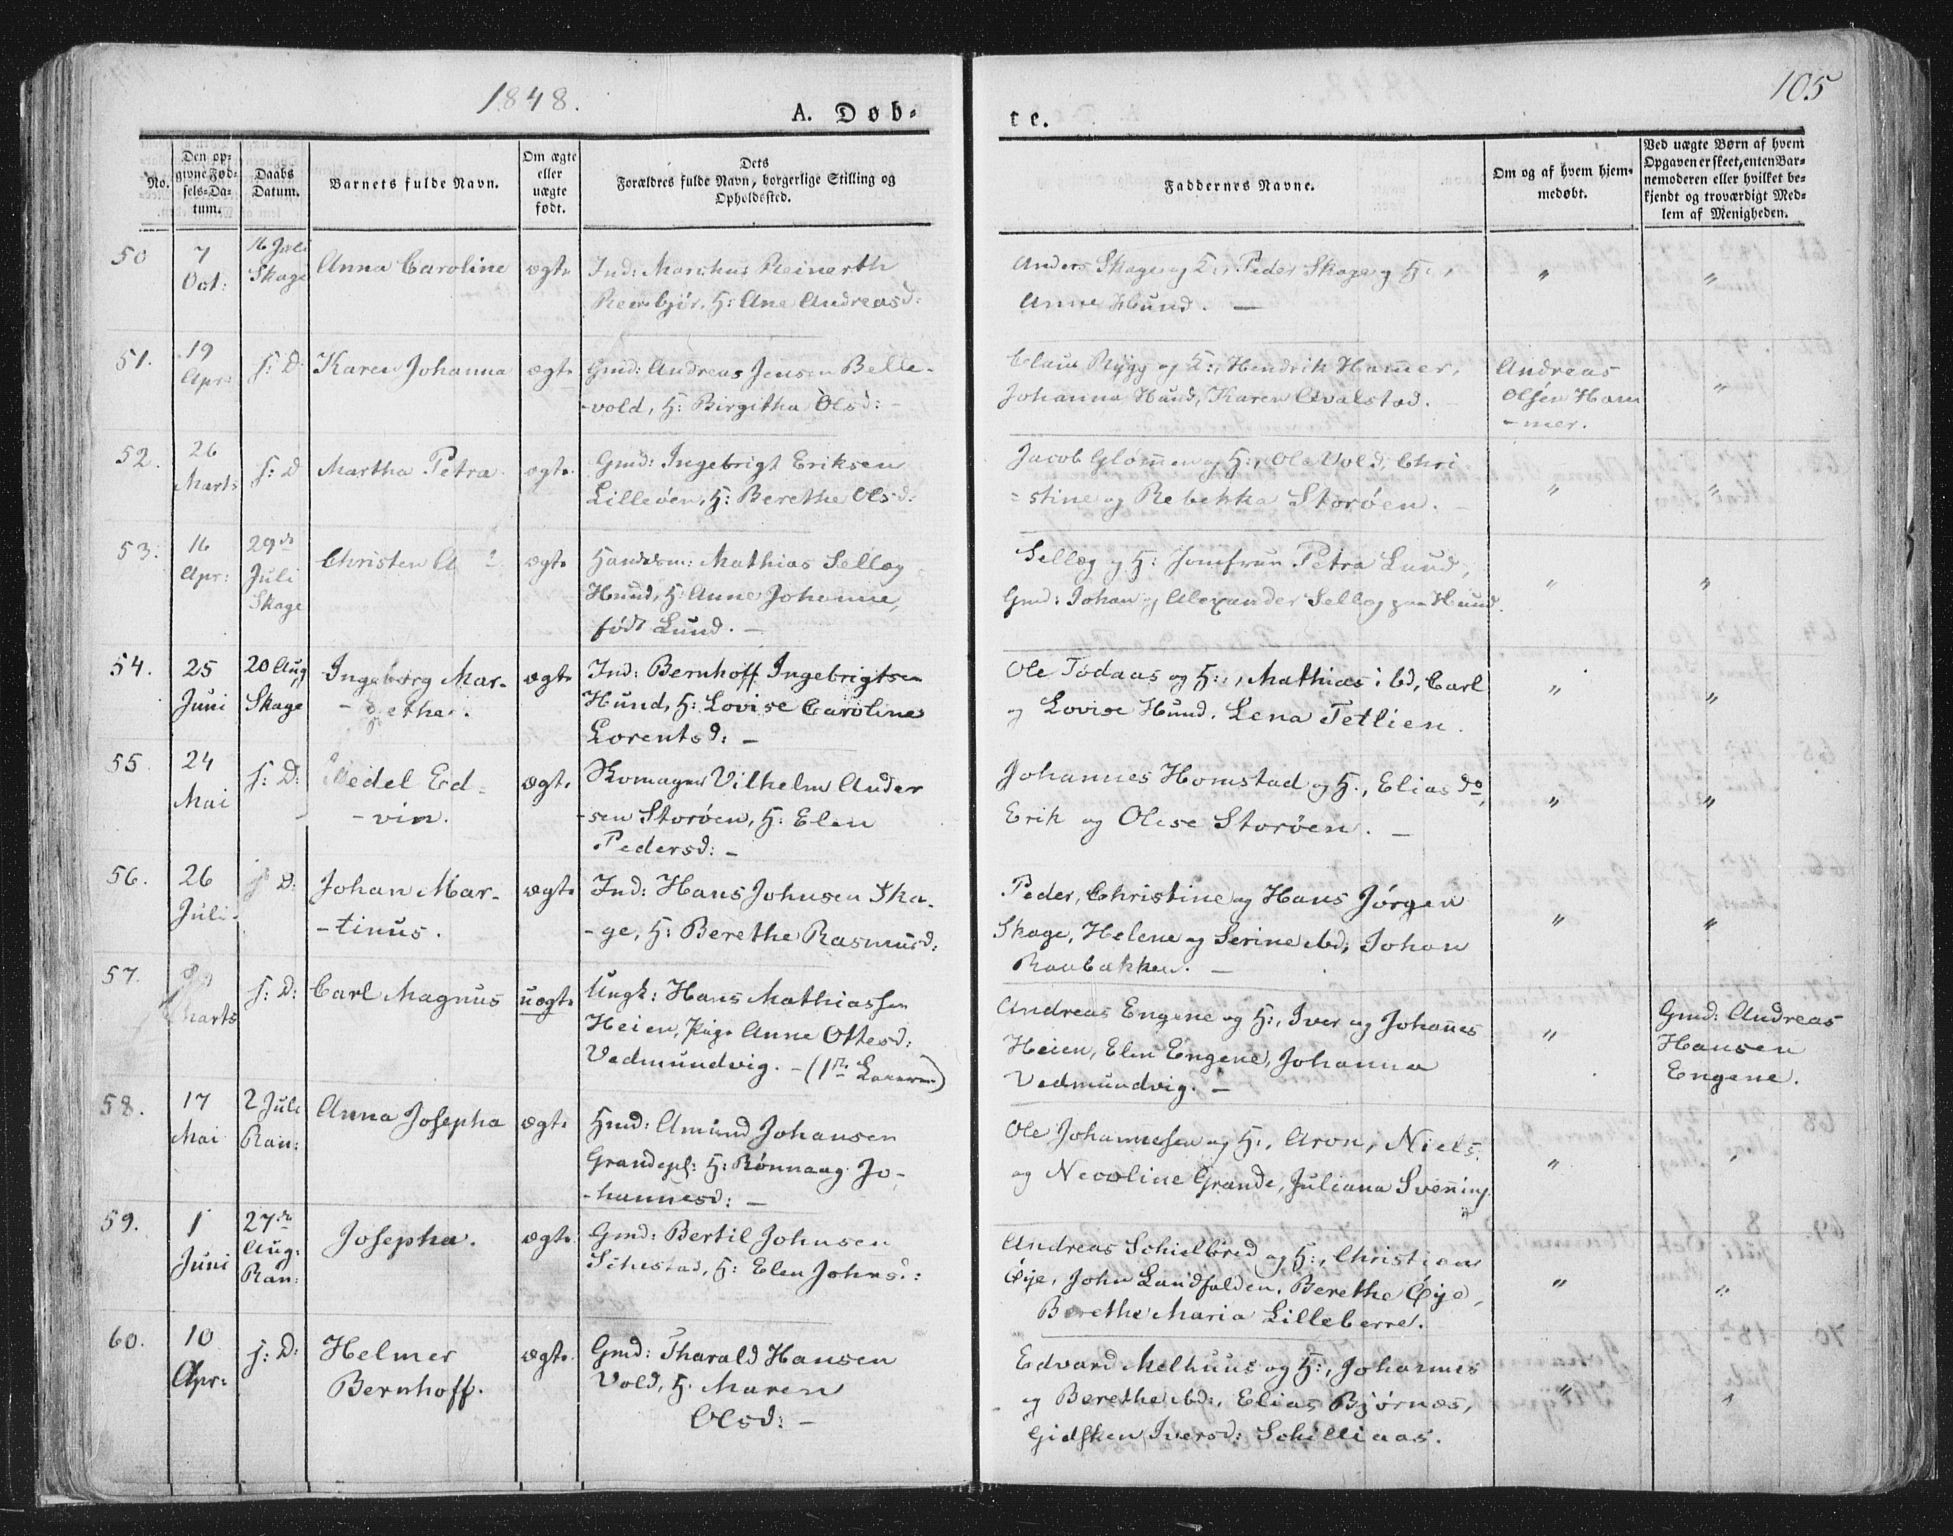 1848.
A. Døb-
te.
105
No.
Den op-
givne Fød-
sels-Da-
tum.
Daabs
Datum.
Barnets fulde Navn.
Om ægte
eller
uægte
født.
Dets
Forældres fulde Navn, borgerlige Stilling og
Opholdssted.
Faddernes Navne.
Om og af hvem hjem-
medøbt.
Ved uægte Børn af hvem
Opgaven er skeet, enten Bar-
nemoderen eller hvilket be-
kjendt og troværdigt Med-
lem af Menigheden.
50
7
Oct:
16 Juli
Skage
Anna Caroline
ægte
Ind: Marchus Reinerth
H: Ane Andreasd:
Anders Skage og H:, Peder Skage og H:,
Anne Hund. —
"
"
51.
19
Apr:
s: D:
Karen Johanna
ægte
Gmd: Andreas Jensen Belle-
-vold, H: Birgitha Olsd: -
Claus Rygg og H:, Hendrik Hammer,
Johanna Hund, Karen Qvalstad.
Andreas
Olsen Ham
-mer.
"
52.
26
Marts
s: D
Martha Petra
ægte
Gmd: Ingebrigt Eriksen
Lilleøen, H: Berethe Olsd:
Jacob Glømmen og H:, Ole Vold, Chri
=stine og Rebekka Storøen.
"
"
53.
16
Apr:
29de
Juli
Skage
Christen
ægte
Handelsm: Mathias Sellæg
Hund, H: Anne Johanne,
født Lund. —
Sellæg og H: Jomfru Petra Lund,
Gmd: Johan og Alexander Sellæg paa Hund.
"
"
54.
25
Juni
20 Aug
Skage
Ingeborg Mar-
-gethe.
ægte
Ind: Bernhoff Ingebrigtsen
Hund, H: Lovise Caroline
Lorentsd: —
Ole Tødaas og H:, Mathias ibd, Carl
og Lovise Hund, Lena Tetlien.
"
"
55.
24
Mai
s: D:
Edel Ed-
-vin.
ægte
Skomager Vilhelm Ander
-sen Storøen, H: Elen
Pedersd: -
Johannes Homstad og H., Elias do,
Erik og Olese Storøen. —
"
"
56.
26
Juli
s: D:
Johan Mar-
-tinus.
ægte
Ind: Hans Johnsen Ska-
-ge, H: Berethe Rasmusd:
Peder, Christine og Hans Jørgen
Skage, Helene og Serine ibd, Johan
Raubakken. —
"
"
57.
Marts
s: D:
Carl Magnus
uægte
Ungk: Hans Mathiassen
Heien, Pige Anne Ottesd:
Vedmundvig. - (1ste Leierm)
Andreas Engene og H:, Iver og Johannes
Heien, Elen Engene, Johanna
Vedmundvig. —
"
Gmd: Andreas
Hansen
Engene.
58.
17
Mai
2 Juli
Ran:
Anna Josepha
ægte
Hmd: Amund Johansen
Grandepl: H: Rønnaug Jo-
-hannesd: —
Ole Johannesen og H:, Aron, Niels
og Necoline Grande, Juliana Svenning
"
"
59.
1
Juni
27de
Aug:
Ran:
Josepha.
ægte
Gmd: Bertil Johnsen
H: Elen Johnsd:
Andreas Schielbred og H:, Christian
Øye, John Landfalden, Berethe Øye,
Berethe Maria Lilleberre.
"
"
60.
10
Apr:
s: D:
Helmer
Bernhoff.
ægte
Gmd: Tharald Hansen
Vold, H. Maren
Olsd: —
Edvard Melhuus og H:, Johannes
og Berethe ibd:, Elias Bjørnæs,
Gidsken Iversd: Schilliaas.
"
"